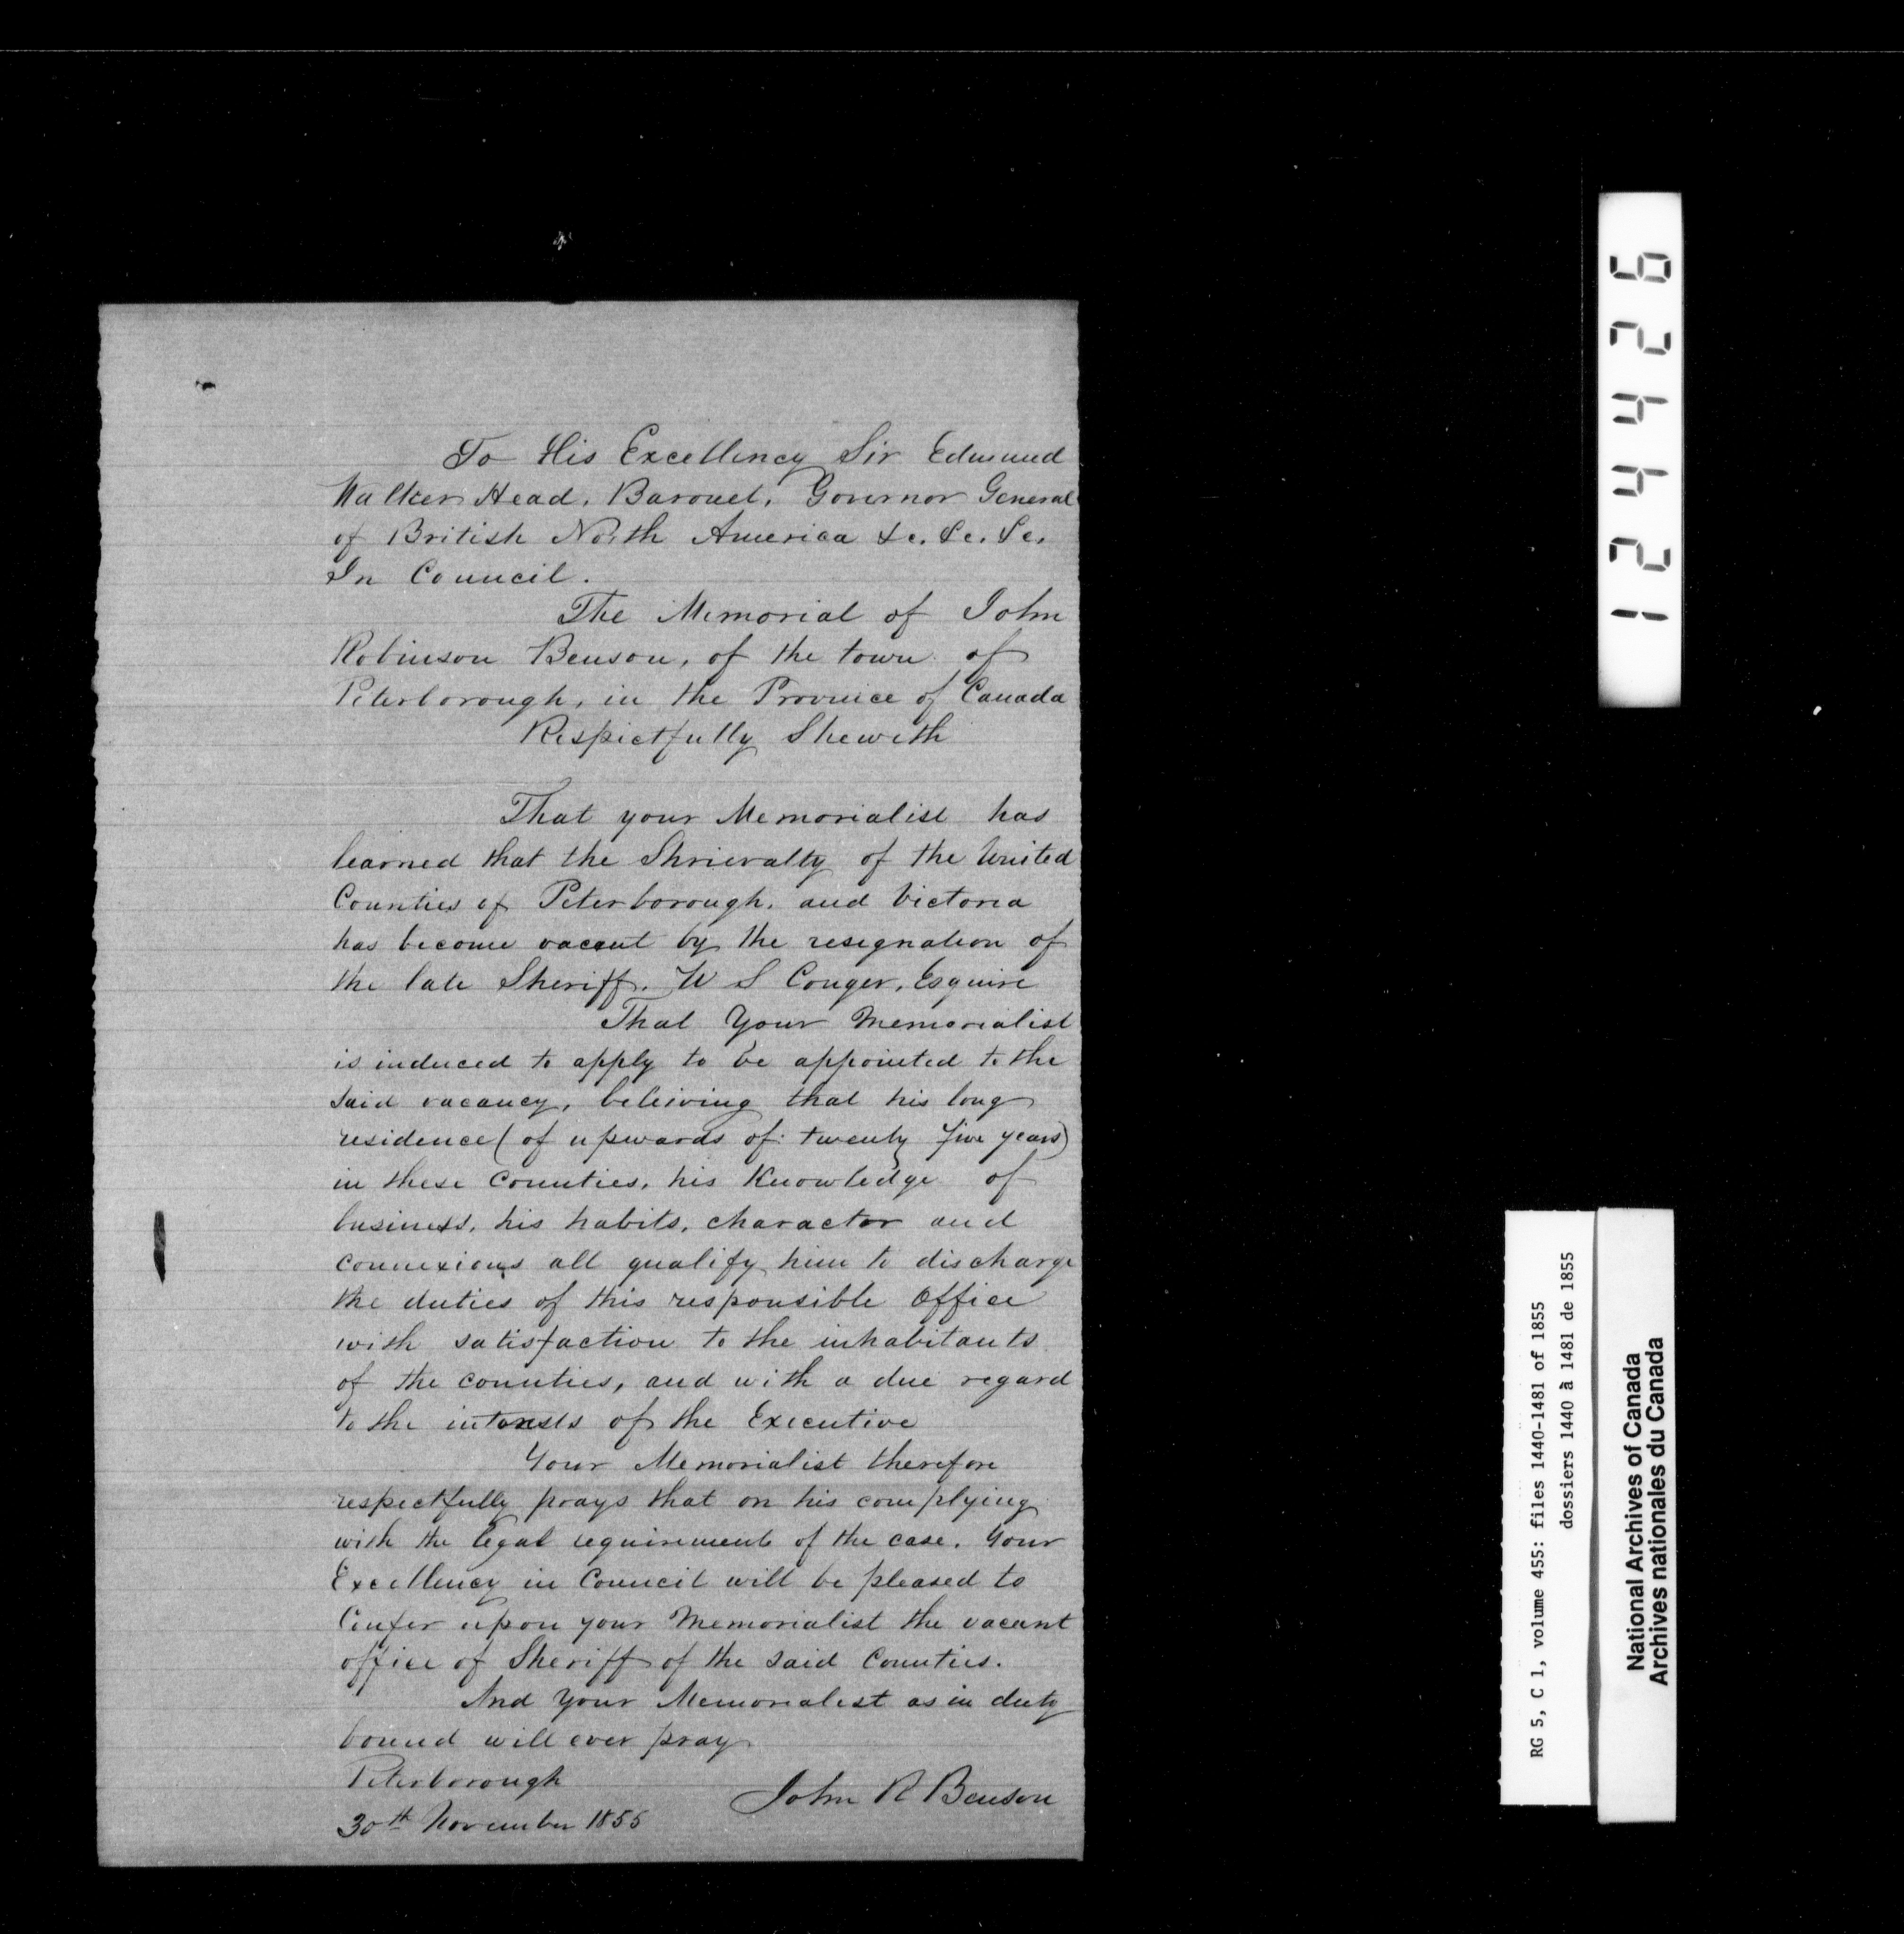 To His Excellency Sir Edmund
Walker Head, Baronet, Governor General
of British North America &c. &c. &c.
In Council.
The Memorial of John
Robinson Benson, of the town of
Peterborough, in the Province of Canada
Respectfully Sheweth
That your Memorialist has
learned that the Shrievalty of the United
Counties of Peterborough, and Victoria
has become vacant by the resignation of
the late Sheriff, W S Conger, Esquire
That Your Memorialist
is induced to apply to be appointed to the
said vacancy, beleiving that his long
residence (of upwards of twenty five years)
in these Counties, his Knowledge of
business, his habits, charactor and
connexions all qualify him to discharge
the duties of this responsible Office
with satisfaction to the inhabitants
of the counties, and with a due regard
to the interests of the Executive
Your Memorialist therefore
respectfully prays that on his complying
with the legal requirements of the case, Your
Excellency in Council will be pleased to
Confer upon your Memorialist the vacant
office of Sheriff of the said Counties.
And Your Memorialist as in duty
bound will ever pray
Peterborough
30th November 1855
John R Benson
124426
RG 5, C 1, volume 455: files 1440-1481 of 1855
dossiers 1440 à 1481 de 1855
National Archives of Canada
Archives nationales du Canada